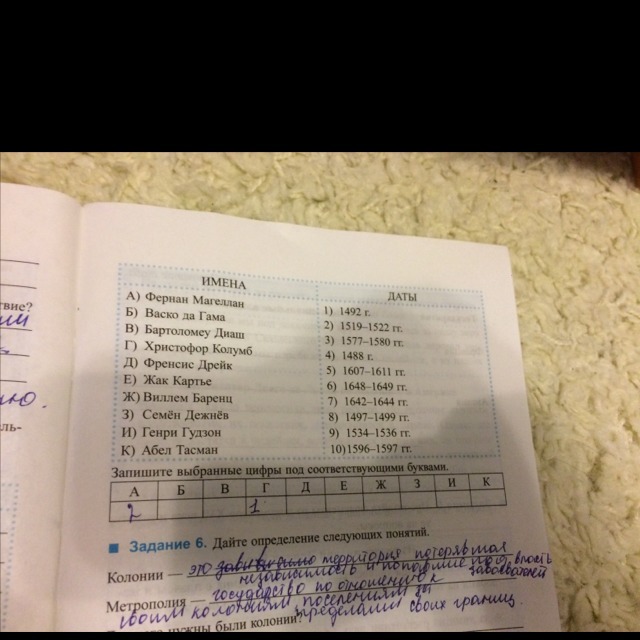 твие?
ии
ю.
ль-
ИМЕНА
А) Фернан Магеллан
Б) Васко да Гама
В) Бартоломеу Диаш
Г) Христофор Колумб
Д) Френсис Дрейк
Е) Жак Картье
Ж) Виллем Баренц
З) Семён Дежнёв
И) Генри Гудзон
К) Абел Тасман
ДАТЫ
1) 1492 г.
2) 1519–1522 гг.
3) 1577–1580 гг.
4) 1488 г.
5) 1607–1611 гг.
6) 1648–1649 гг.
7) 1642–1644 гг.
8) 1497–1499 гг.
9) 1534–1536 гг.
10) 1596–1597 гг.
Запишите выбранные цифры под соответствующими буквами.
А Б В Г Д Е Ж З И К
2 1
Задание 6. Дайте определение следующих понятий.
Колонии — это территория потерявшая
независимость и попавшие под власть
завоевателей
Метрополия — государство по отношению к
своим колониям, поселениям
пределами своих границ.
нужны были колонии?